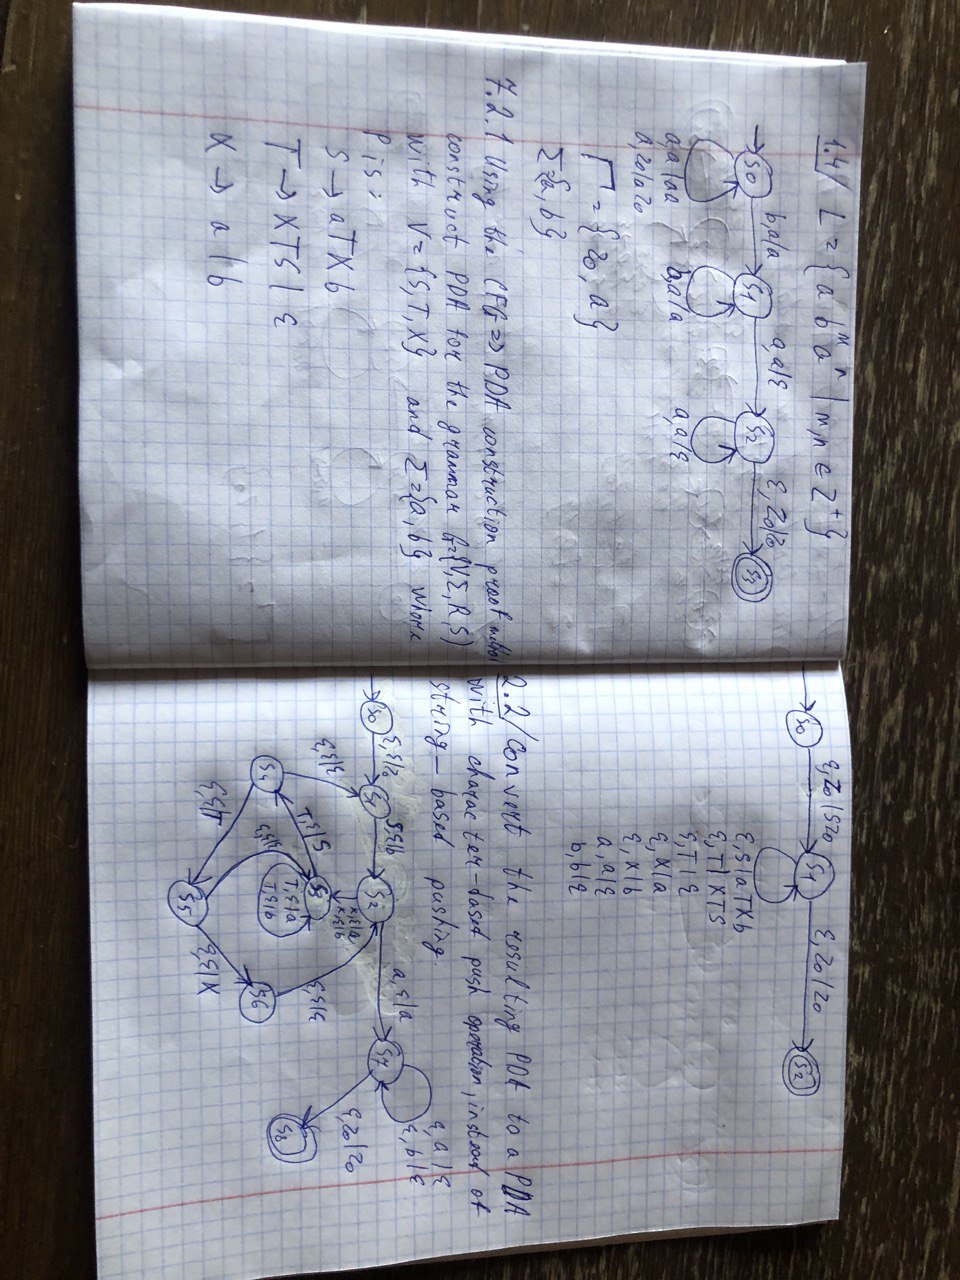 1.4/ L = { a b^m a^n | m,n ∈ Z^+ }
b,a/a a,a/ε ε, Z0/z0
S0 S1 S2 S3
a,a/aa b,a/a a,a/ε
a,z0/az0
Γ = { z0, a }
Σ={a, b}
7.2.1 Using the CFG => PDA construction proof method
construct PDA for the grammar G={V,Σ,R,S)
with V = {S,T,X} and Σ={a, b} where
P is:
S → aTXb
T → XTS | ε
X → a | b
ε,Z0/Sz0 ε,z0/z0
S0 S1 S2
ε,S/aTXb
ε,T/XTS
ε,T/ε
ε,X/a
ε,X/b
a,a/ε
b,b/ε
2.2/ Convert the resulting PDA to a PDA
with character-based push operation, instead of
string-based pushing.
ε,a/ε
ε,b/ε
S0 ε,ε/z0 S1 S,ε/b S2 a,ε/a S7
x,ε/a
x,ε/b
ε,z0/z0
ε,ε/ε T,ε/S S3 ε,ε/ε
T,ε/a
T,ε/b
S8
S4 ε,ε/ε S6
ε,ε/T S5 ε,ε/X